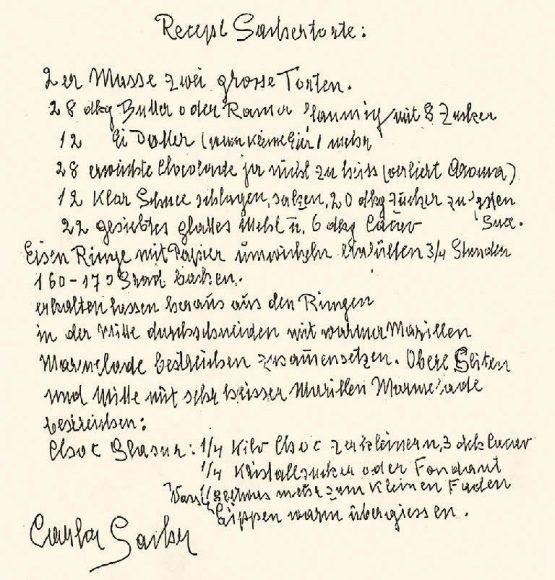 Recept Sachertorte:
2er Masse zwei grosse Torten.
28 dkg Butter oder Rama flaumig mit 8 Zucker
12 Ei Dotter (wenn kleine Eier) mehr
28 erweichte Chocolade ja nicht zu heiss (verliert Aroma)
12 Klar Schnee schlagen, salzen, 20 dkg Zucker zu
22 gesiebtes glattes Mehl u. 6 dkg Cacao
Eisen Ringe mit Papier umwickeln einfüllen 3/4 Stunden
160-170 Grad backen.
erkalten lassen heraus aus den Ringen
in der Mitte durchschneiden mit warmer Marillen
Marmelade bestreichen zusamensetzen. Obere Seiten
und Mitte mit sehr heisser Marillen Marmelade
bestreichen:
Choc Glasur: 1/4 Kilo Choc zerkleinern, 3 dek Cacao
1/4 Kristallzucker oder Fondant
zum kleinen Faden
warm übergiessen.
Carla Sacher